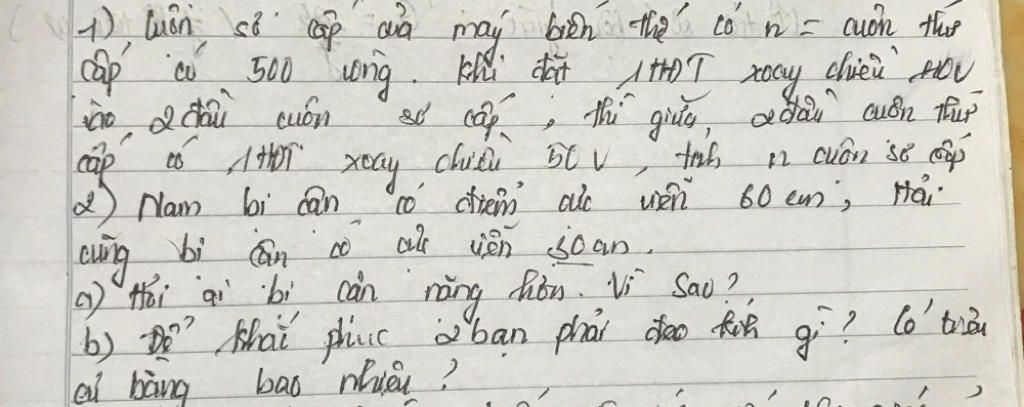 1) Cuộn sơ cấp của máy biến thế có n = cuộn thứ
cấp có 500 vòng. Khi đặt 1 HĐT xoay chiều
vào 2 đầu cuộn sơ cấp, thì giữa, 2 đầu cuộn thứ
cấp có 1 HĐT xoay chiều 50V, tính n cuộn sơ cấp
2) Nam bị cận có điểm cực viễn 60 cm; Hải
cũng bị cận có cực viễn cm.
a) Hỏi ai bị cận nặng hơn. Vì sao?
b) Để khắc phục 2 bạn phải đeo kính gì? Có tiêu
cự bằng bao nhiêu?